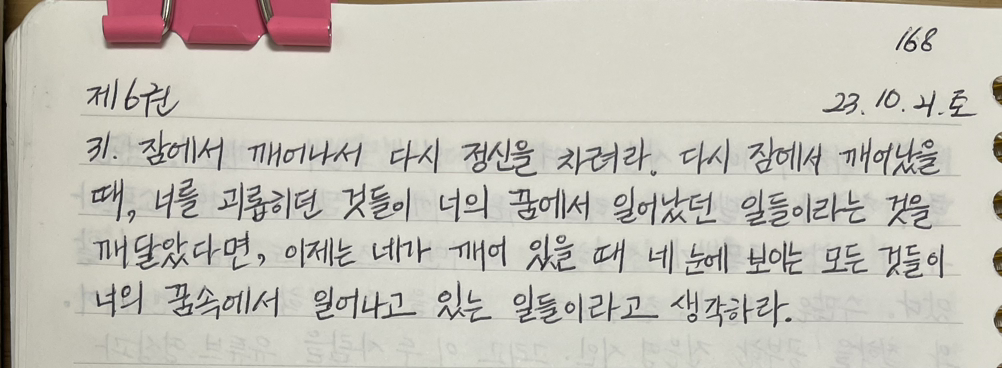 168
제6권
23.10.21.토
31. 잠에서 깨어나서 다시 정신을 차려라. 다시 잠에서 깨어났을
때, 너를 괴롭히던 것들이 너의 꿈에서 일어났던 일들이라는 것을
깨달았다면, 이제는 네가 깨어 있을 때 네 눈에 보이는 모든 것들이
너의 꿈속에서 일어나고 있는 일들이라고 생각하라.